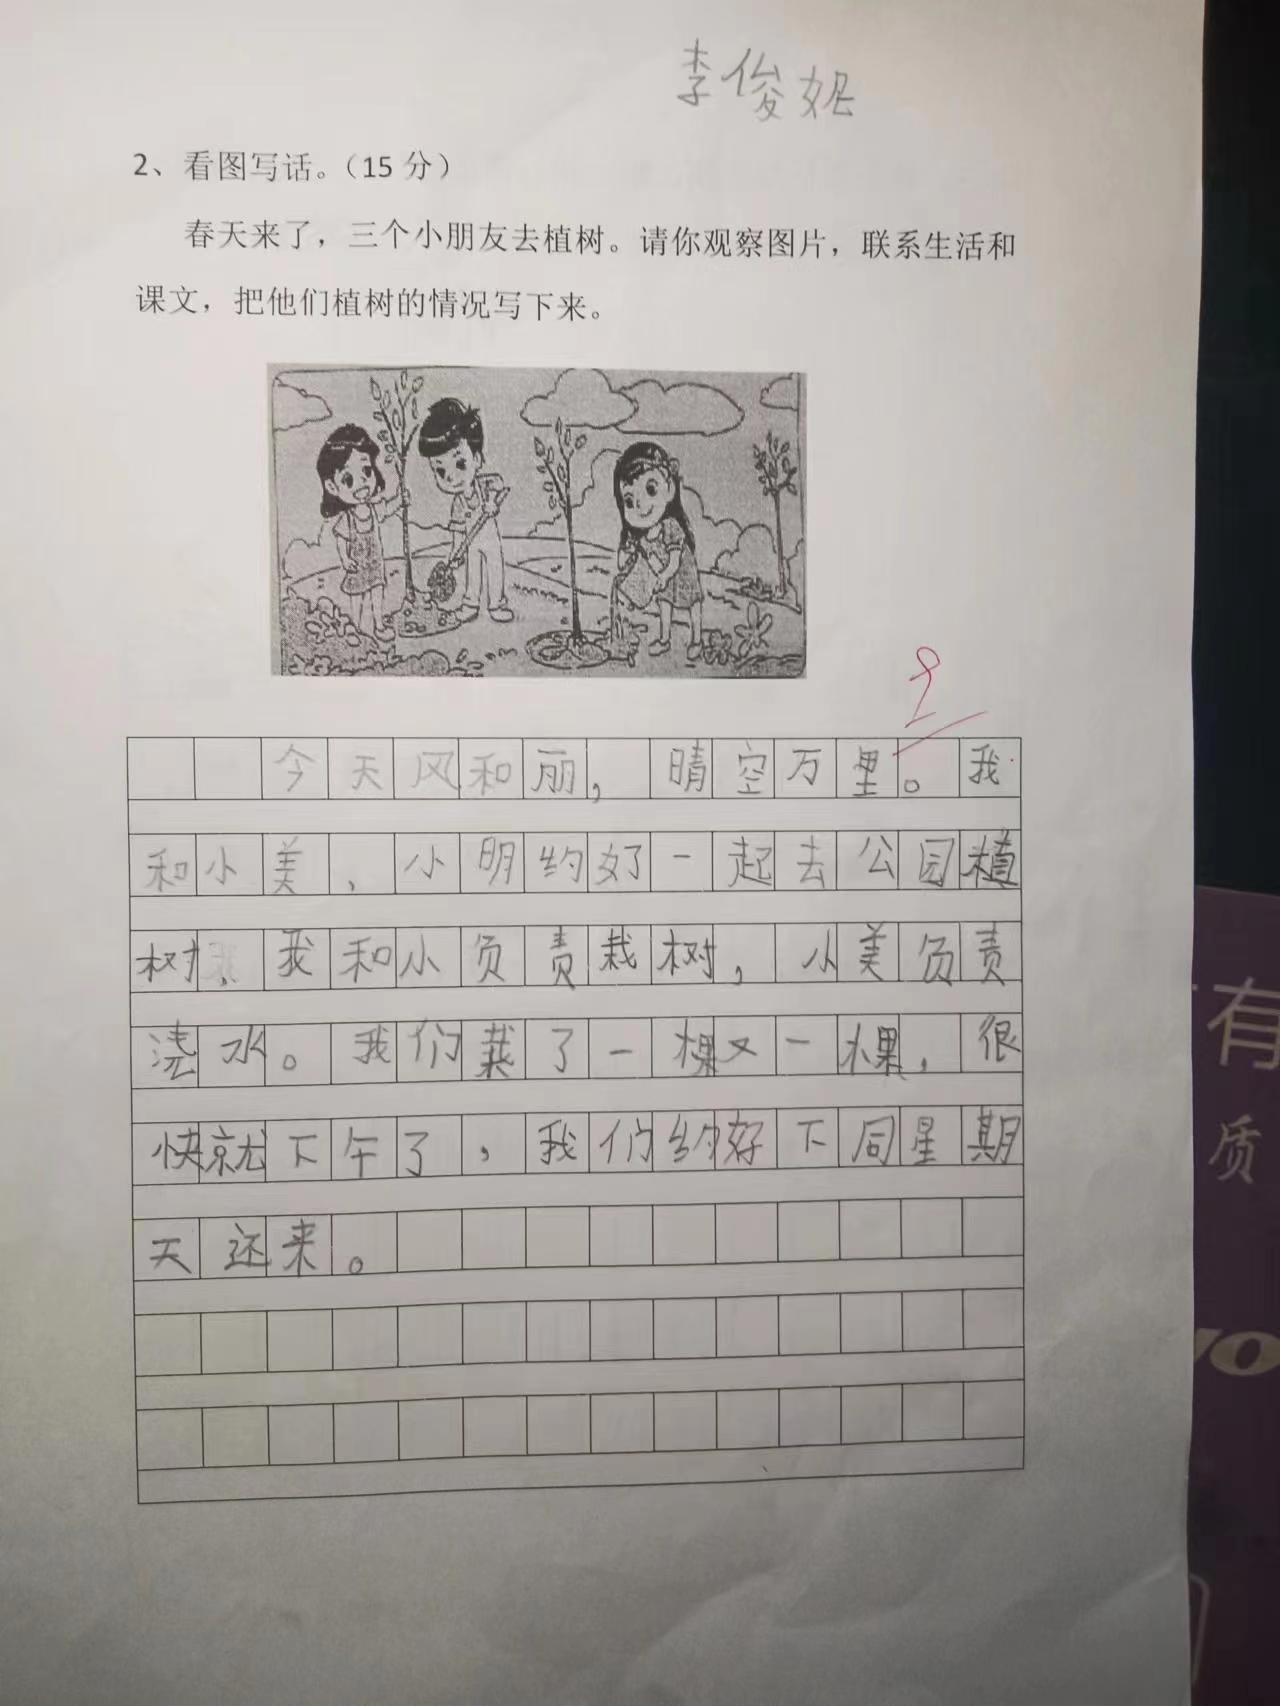 李俊妮
2、看图写话。（15 分）
春天来了，三个小朋友去植树。请你观察图片，联系生活和
课文，把他们植树的情况写下来。
9
今天风和丽，晴空万里。我
和小美，小明约好一起去公园植
树，我和小负责栽树，小美负责
浇水。我们栽了一棵又一棵，很
快就下午了，我们约好下同星期
天还来。
有
质